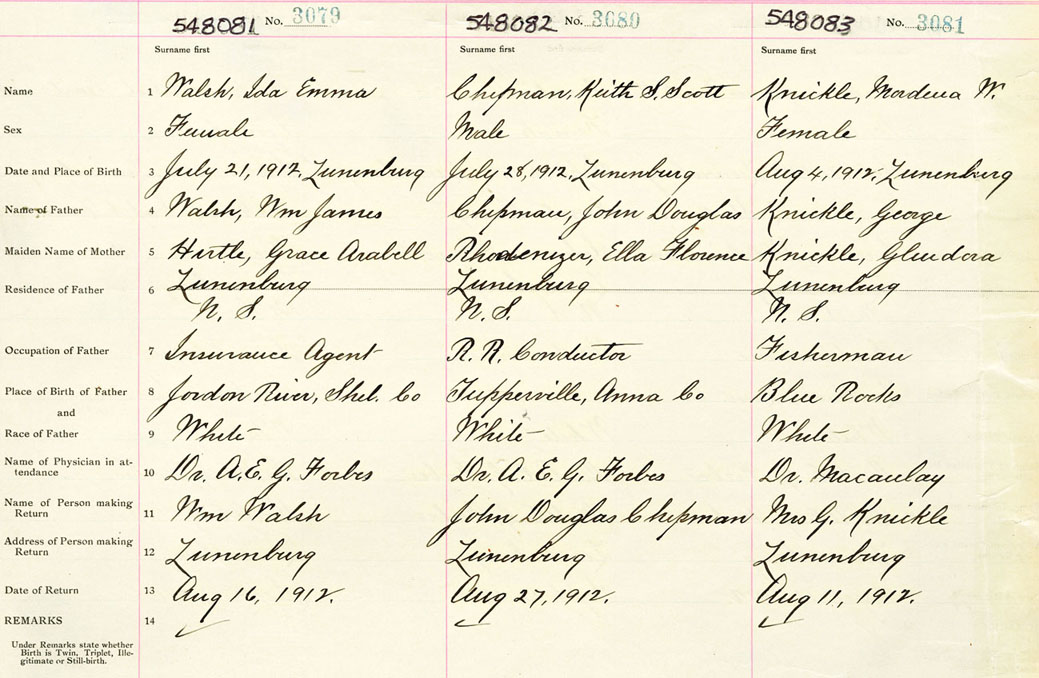 548081 No. 3079 548082 No. 3080 548083 No. 3081
Surname first Surname first Surname first
Name 1 Walsh, Ida Emma Chipman, Keith S. Scott Knickle, Mordena W.
Sex 2 Female Male Female
Date and Place of Birth 3 July 21, 1912, Lunenburg July 28, 1912, Lunenburg Aug 4, 1912, Lunenburg
Name of Father 4 Walsh, Wm James Chipman, John Douglas Knickle, George
Maiden Name of Mother 5 Hirtle, Grace Arabell Rhodenizer, Ella Florence Knickle, Glendora
Residence of Father 6 Lunenburg Lunenburg Lunenburg
N. S. N. S. N. S.
Occupation of Father 7 Insurance Agent R. R. Conductor Fisherman
Place of Birth of Father 8 Jordon River, Shel. Co Tupperville, Anna Co Blue Rocks
and
Race of Father 9 White White White
Name of Physician in at-
tendance 10 Dr. A. E. G. Forbes Dr. A. E. G. Forbes Dr. Macaulay
Name of Person making
Return 11 Wm Walsh John Douglas Chipman Mrs G. Knickle
Address of Person making
Return 12 Lunenburg Lunenburg Lunenburg
Date of Return 13 Aug 16, 1912. Aug 27, 1912. Aug 11, 1912.
REMARKS 14
Under Remarks state whether
Birth is Twin, Triplet, Ille-
gitimate or Still-birth.